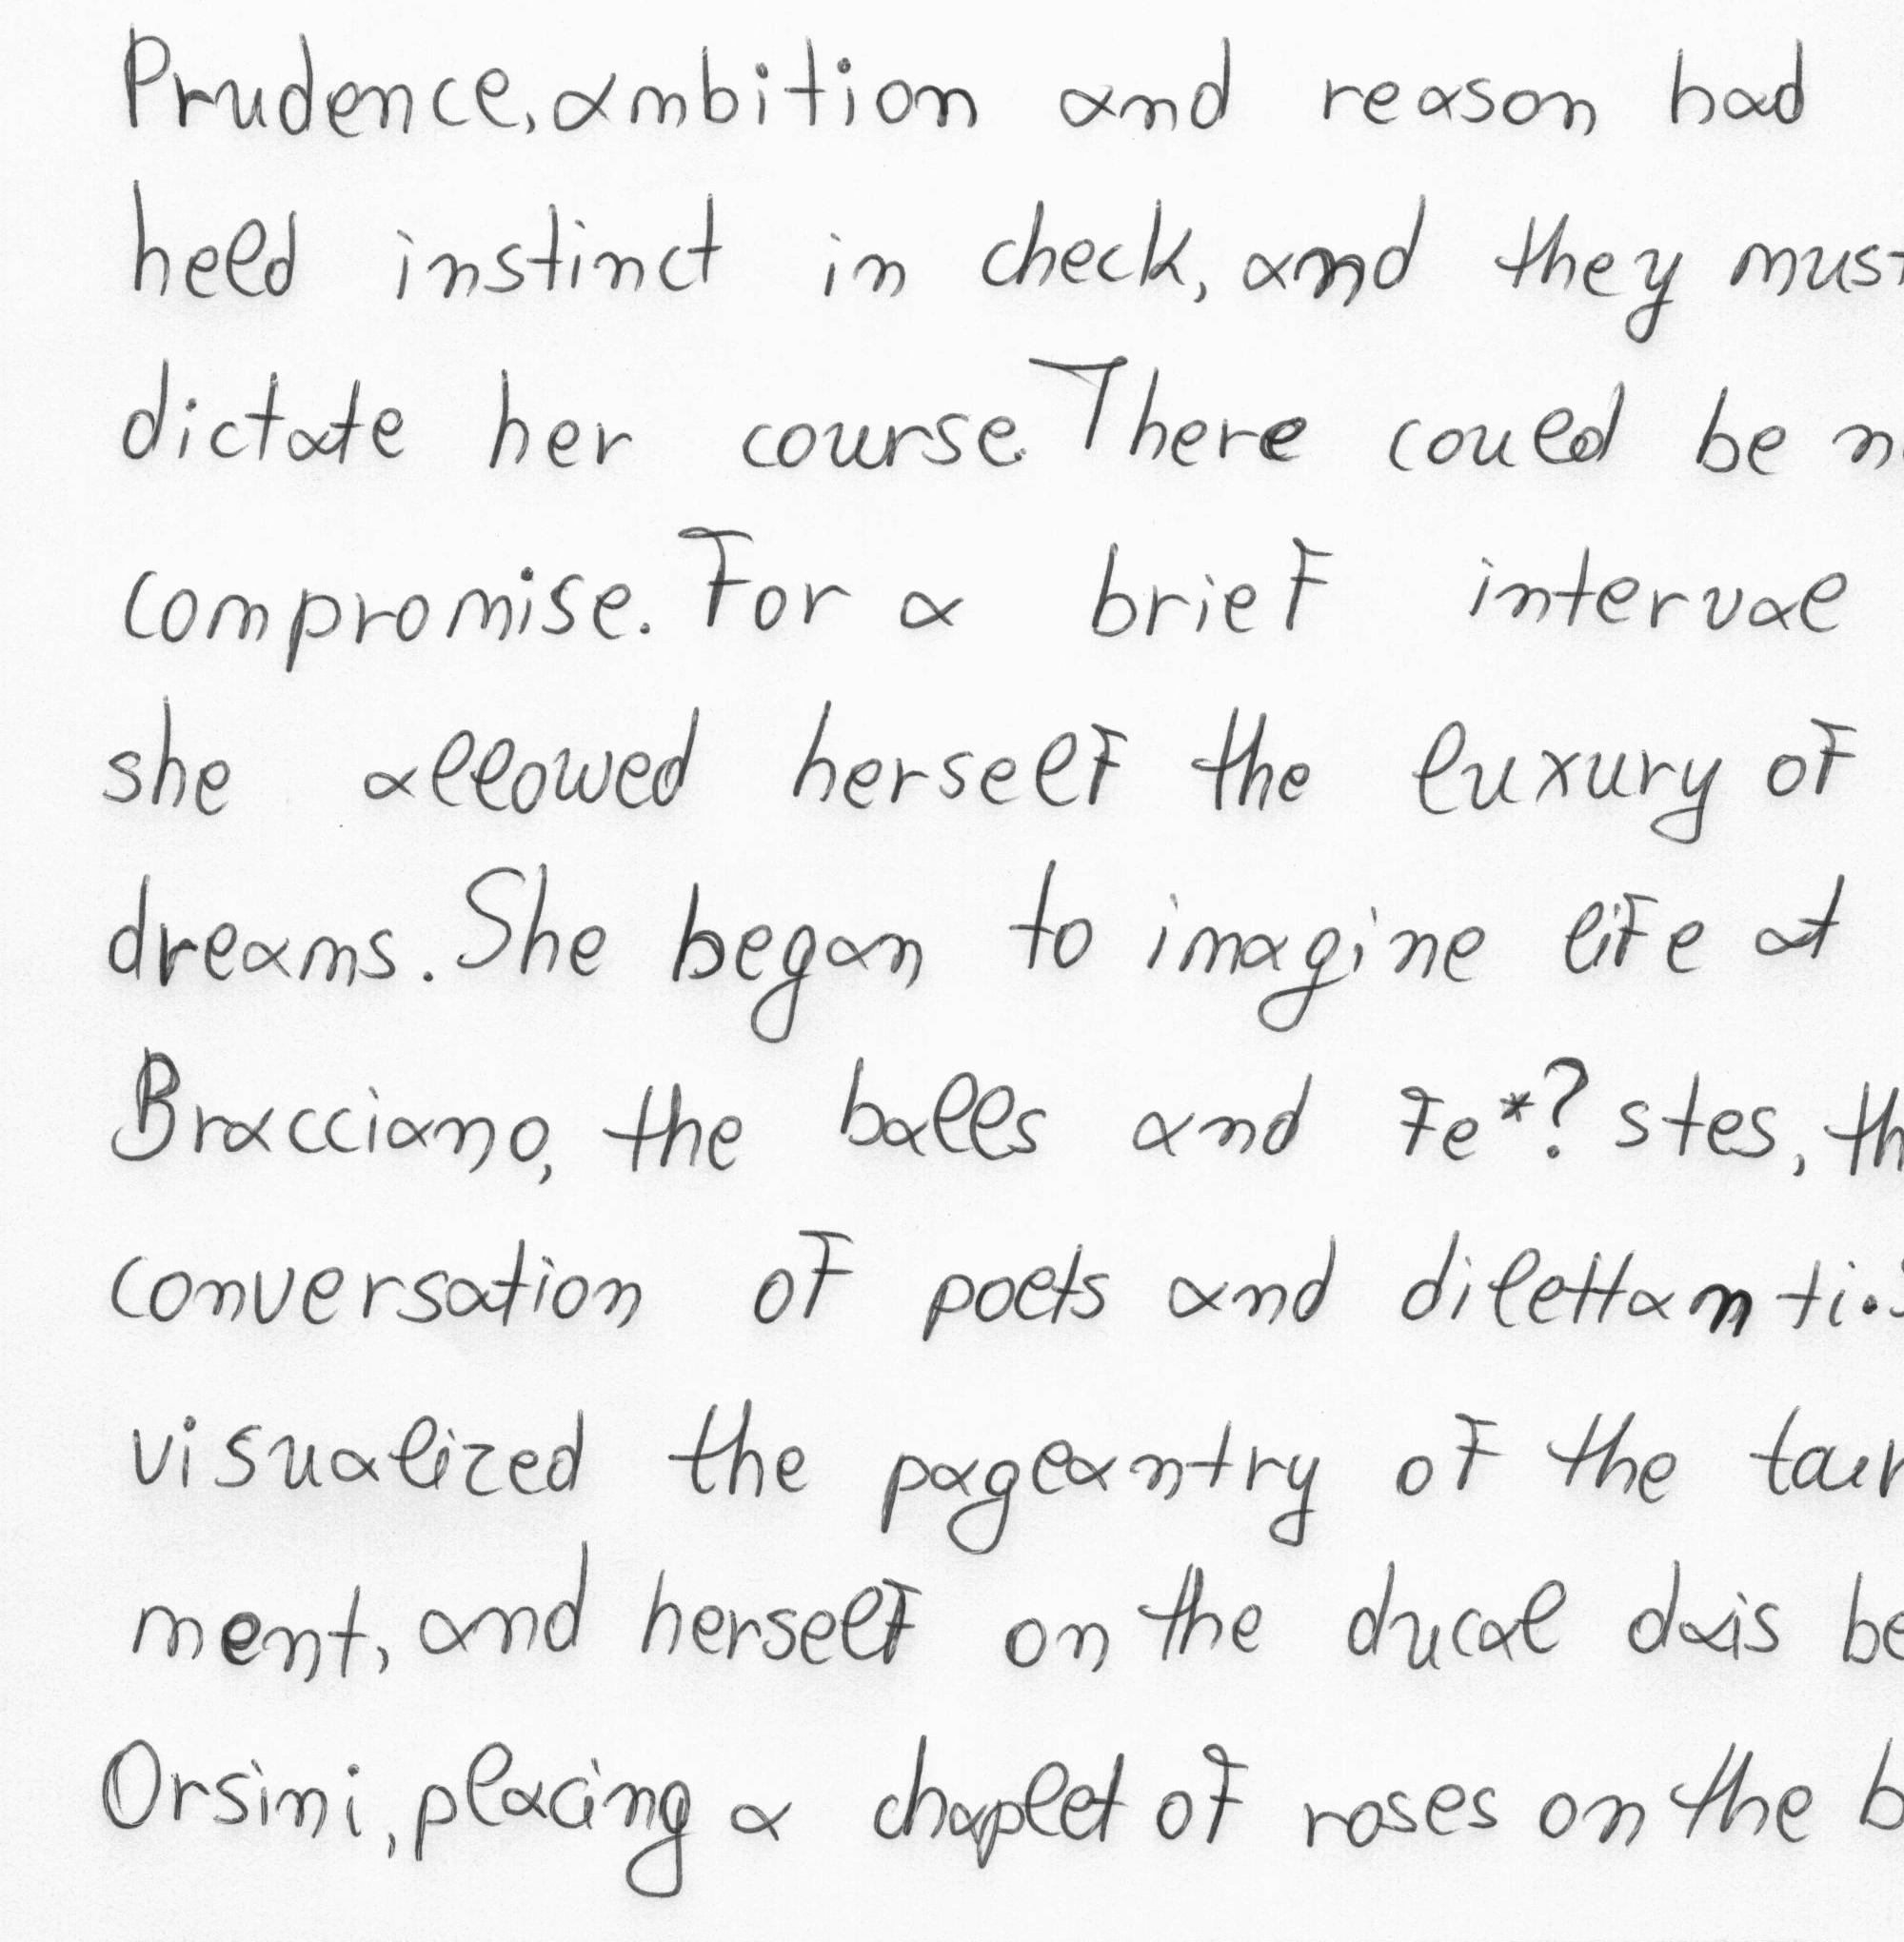 Prudence, ambition and reason had
held instinct in check, and they must
dictate her course. There could be
compromise. For a brief interval
she allowed herself the luxury of
dreams. She began to imagine life at
Bracciano, the balls and fe*? stes,
conversation of poets and dilettanti.
visualized the pageantry of the
ment, and herself on the ducal dais
Orsini, placing a chaplet of roses on the